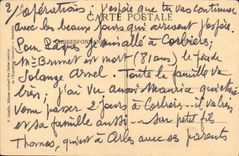 2/ d'opérations; j'espère que tu vas continuer
CARTE POSTALE
avec les beaux jours qui arrivent j'espère.
Pour Pâques je suis allé à Corbières;
Mr Brunet est mort (81 ans) le de
Solange Arnel - Toute la famille va
bien, j'ai vu aussi Maurice qui était
venu passer 2 jours à Corbières il va bien
et sa famille aussi - son petit fils
Thomas, qui est à Arles avec ses parents